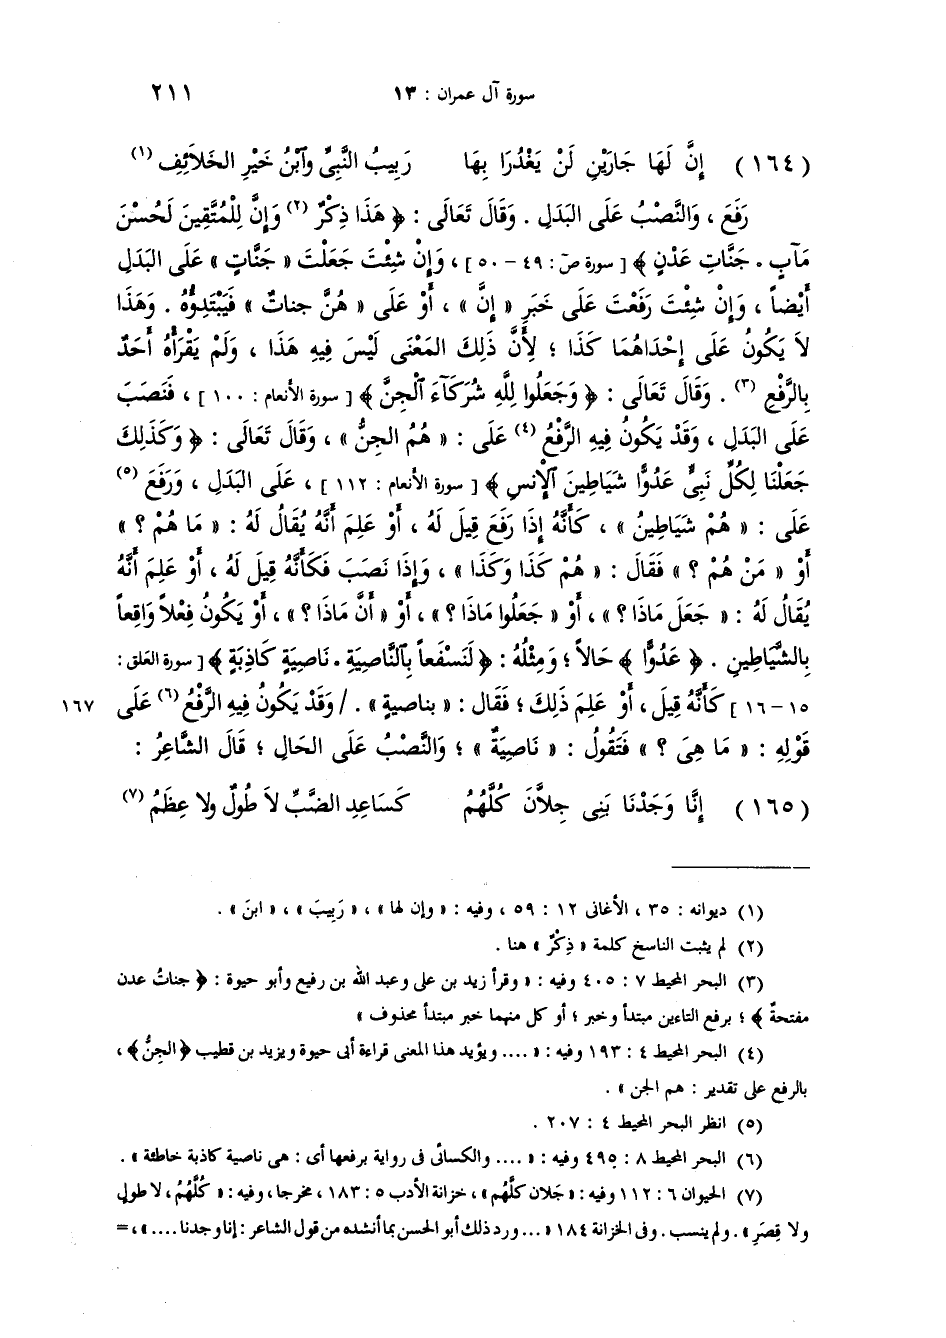 سورة آل عمران : ١٣ ٢١١
(١٦٤) إِنَّ لَهَا جَارَيْنِ لَنْ يَغْدُرَا بِهَا رَبِيبُ النَّبِيِّ وَٱبْنُ خَيْرِ الخَلاَئِفِ (١)
رَفَعَ ، وَالنَّصْبُ عَلَى البَدَلِ . وَقَالَ تَعَالَى : ﴿ هَذَا ذِكْرٌ (٢) وَإِنَّ لِلْمُتَّقِينَ لَحُسْنَ
مَآبٍ . جَنَّاتِ عَدْنٍ ﴾ [ سورة صَ : ٤٩ – ٥٠ ] ، وَإِنْ شِئْتَ جَعَلْتَ « جَنَّاتٍ » عَلَى البَدَلِ
أَيْضاً ، وَإِنْ شِئْتَ رَفَعْتَ عَلَى خَبَرِ « إِنَّ » ، أَوْ عَلَى « هُنَّ جناتٌ » فَيَبْتَدِؤُهُ . وَهَذَا
لاَ يَكُونُ عَلَى إِحْدَاهُمَا كَذَا ؛ لِأَنَّ ذَلِكَ المَعْنَى لَيْسَ فِيهِ هَذَا ، وَلَمْ يَقْرَأْهُ أَحَدٌ
بِالرَّفْعِ (٣) . وَقَالَ تَعَالَى : ﴿ وَجَعَلُوا لِلَّهِ شُرَكَآءَ ٱلْجِنَّ ﴾ [ سورة الأنعام : ١٠٠ ] ، فَنَصَبَ
عَلَى البَدَلِ ، وَقَدْ يَكُونُ فِيهِ الرَّفْعُ (٤) عَلَى : « هُمُ الجِنُّ » ، وَقَالَ تَعَالَى : ﴿ وَكَذَلِكَ
جَعَلْنَا لِكُلِّ نَبِيٍّ عَدُوًّا شَيَاطِينَ ٱلْإِنسِ ﴾ [ سورة الأنعام : ١١٢ ] ، عَلَى البَدَلِ ، وَرَفَعَ (٥)
عَلَى : « هُمْ شَيَاطِينُ » ، كَأَنَّهُ إِذَا رَفَعَ قِيلَ لَهُ ، أَوْ عَلِمَ أَنَّهُ يُقَالُ لَهُ : « مَا هُمْ ؟ »
أَوْ « مَنْ هُمْ ؟ » فَقَالَ : « هُمْ كَذَا وَكَذَا » ، وَإِذَا نَصَبَ فَكَأَنَّهُ قِيلَ لَهُ ، أَوْ عَلِمَ أَنَّهُ
يُقَالُ لَهُ : « جَعَلَ مَاذَا ؟ » ، أَوْ « جَعَلُوا مَاذَا ؟ » ، أَوْ « أَنَّ مَاذَا ؟ » ، أَوْ يَكُونُ فِعْلاً وَاقِعاً
بِالشَّيَاطِينِ . ﴿ عَدُوًّا ﴾ حَالاً ؛ وَمِثْلُهُ : ﴿ لَنَسْفَعاً بِٱلنَّاصِيَةِ . نَاصِيَةٍ كَاذِبَةٍ ﴾ [ سورة العلق :
١٥ – ١٦ ] كَأَنَّهُ قِيلَ ، أَوْ عَلِمَ ذَلِكَ ؛ فَقَالَ : « بناصيةٍ » . / وَقَدْ يَكُونُ فِيهِ الرَّفْعُ (٦) عَلَى ١٦٧
قَوْلِهِ : « مَا هِىَ ؟ » فَتَقُولُ : « نَاصِيَةٌ » ؛ وَالنَّصْبُ عَلَى الحَالِ ؛ قَالَ الشَّاعِرُ :
(١٦٥) إِنَّا وَجَدْنَا بَنِى جِلاَّنَ كُلَّهُمُ كَسَاعِدِ الضَّبِّ لاَ طُولٌ ولا عِظَمُ (٧)
(١) ديوانه : ٣٥ ، الأغانى ١٢ : ٥٩ ، وفيه : « وإن لها » ، « رَبِيبَ » ، « ابنَ » .
(٢) لم يثبت الناسخ كلمة « ذِكْرٌ » هنا .
(٣) البحر المحيط ٧ : ٤٠٥ وفيه : « وقرأ زيد بن على وعبد الله بن رفيع وأبو حيوة : ﴿ جناتُ عدن
مفتحةٌ ﴾ ؛ برفع التاءين مبتدأ وخبر ؛ أو كل منهما خبر مبتدأ محذوف »
(٤) البحر المحيط ٤ : ١٩٣ وفيه : « .... ويؤيد هذا المعنى قراءة أبى حيوة ويزيد بن قطيب ﴿ الجِنُّ ﴾ ،
بالرفع على تقدير : هم الجن » .
(٥) انظر البحر المحيط ٤ : ٢٠٧ .
(٦) البحر المحيط ٨ : ٤٩٥ وفيه : « .... والكسائى فى رواية برفعها أى : هى ناصية كاذبة خاطئة » .
(٧) الحيوان ٦ : ١١٢ وفيه : « جَلان كلَّهُم » ، خزانة الأدب ٥ : ١٨٣ ، مخرجا ، وفيه : « كُلَّهُمُ ، لا طولٍ
ولا قِصَرِ » . ولم ينسب . وفى الخزانة ١٨٤ « ... ورد ذلك أبو الحسن بما أنشده من قول الشاعر : إنا وجدنا .... » ، =